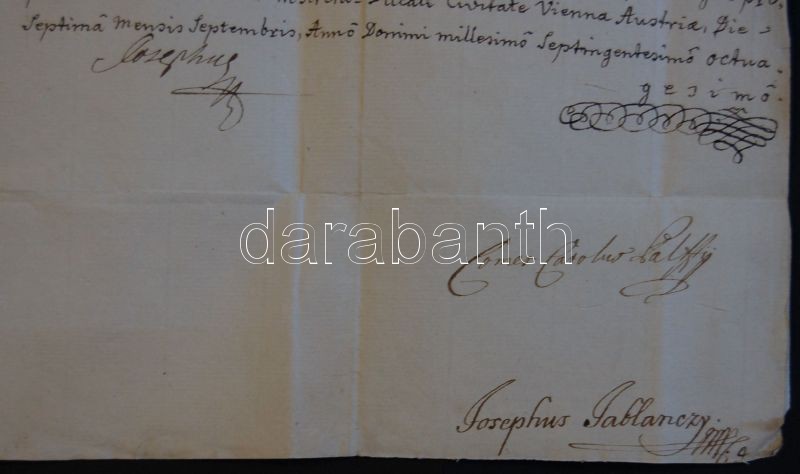 Ducali Civitate Vienna Austriæ, Die
Septimâ Mensis Septembris, Annô Domini millesimô Septingentesimô octua-
gesimô.
Josephus
darabanth
Comes Carolus Palffÿ
Josephus Jablanczy.